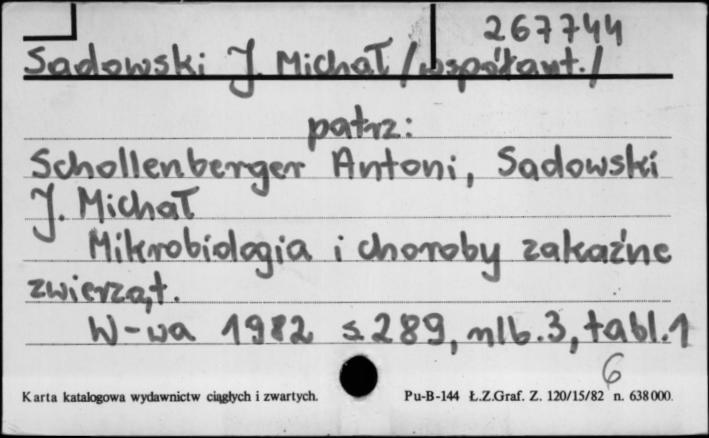 267744
Sadowski J. Michał /współaut./
patrz:
Schollenberger Antoni, Sadowski
J. Michał
Mikrobiologia i choroby zakaźne
zwierząt.
W-wa 1982 s.289, nlb.3, tabl.1
6
Karta katalogowa wydawnictw ciągłych i zwartych. Pu-B-144 Ł.Z.Graf. Z. 120/15/82 n. 638000.